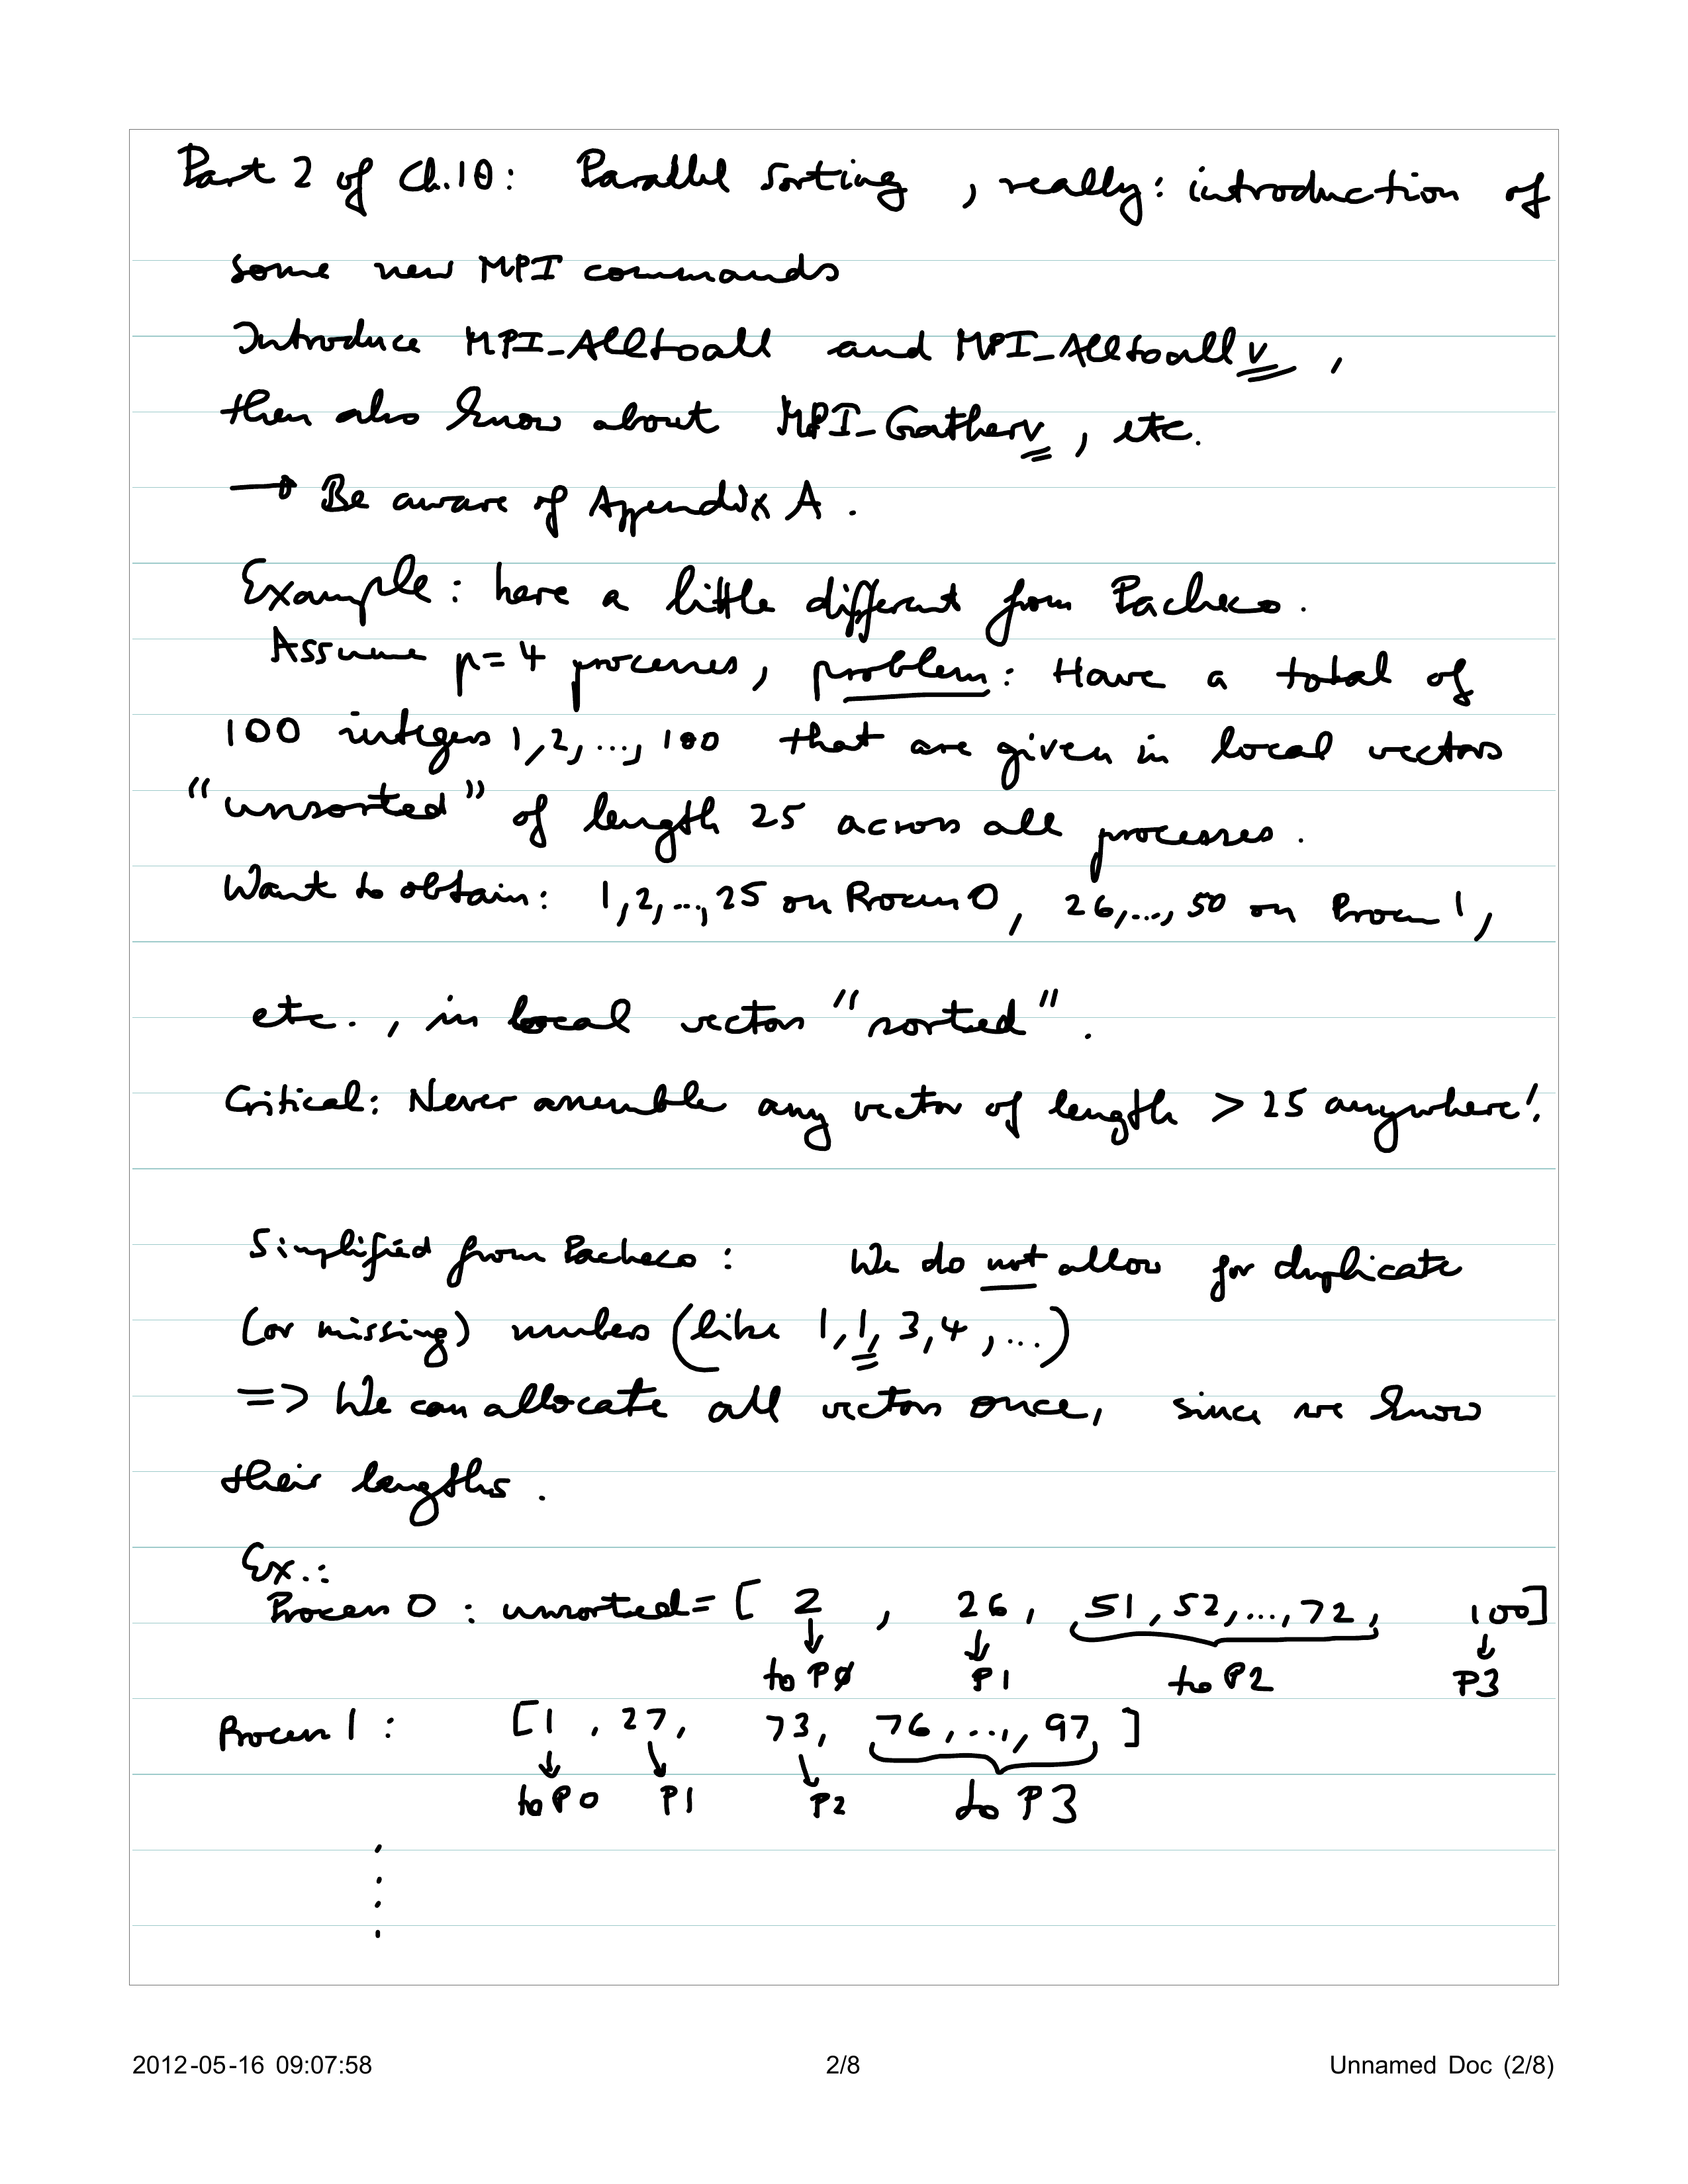 Part 2 of Ch.10: Parallel Sorting, really: introduction of
some new MPI commands
Introduce MPI_Alltoall and MPI_Alltoallv,
then also know about MPI_Gatherv, etc.
→ Be aware of Appendix A.
Example: here a little different from Pacheco.
Assume p=4 processes, problem: Have a total of
100 integers 1,2,...,100 that are given in local vectors
"unsorted" of length 25 across all processes.
Want to obtain: 1,2,...,25 on Process 0, 26,...,50 on Process 1,
etc., in local vectors "sorted".
Critical: Never assemble any vector of length > 25 anywhere!
Simplified from Pacheco: We do not allow for duplicate
(or missing) numbers (like 1,1,3,4,...)
=> We can allocate all vectors once, since we know
their lengths.
Ex.:
Process 0: unsorted=[ 2, 26, 51,52,...,72, 100]
to P0 P1 to P2 P3
Process 1: [1, 27, 73, 76,...,97, ]
to P0 P1 P2 to P3
⋮
2012-05-16 09:07:58 2/8 Unnamed Doc (2/8)